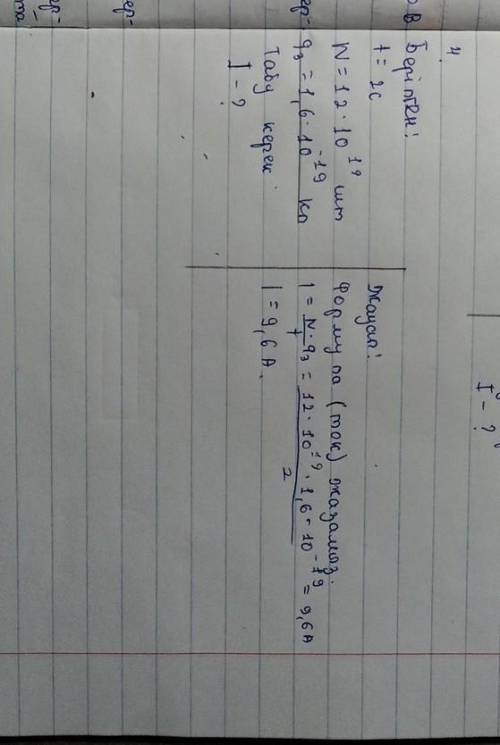 4.
Берілген:
t = 2с
N = 12·10¹⁹ шт
qэ = 1,6·10⁻¹⁹ Кл
Табу керек
I - ?
Жауап:
Формула (ток) жазамыз.
I = N·qэ/t = 12·10¹⁹·1,6·10⁻¹⁹/2 = 9,6А
I = 9,6А.
I - ?